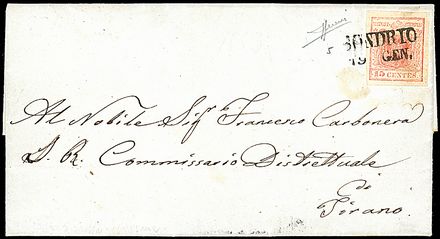 SONDRIO
19 GEN.
15 CENTES
5
Al Nobile Sigr Francesco Carbonera
I. R. Commissario Distrettuale
di
Tirano.